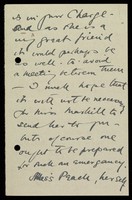 is in your charge -
and as she is a
very great friend
it would perhaps be
as well - to avoid
a meeting between them
- I much hope that
it will not be necessary
for Miss Marshall to
send her to you -
but of course one
ought to be prepared
for such an emergency
Miss Beach, herself